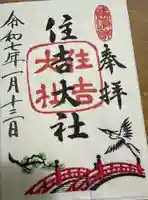 奉拝
住吉大社
住吉
大社
令和七年一月十三日